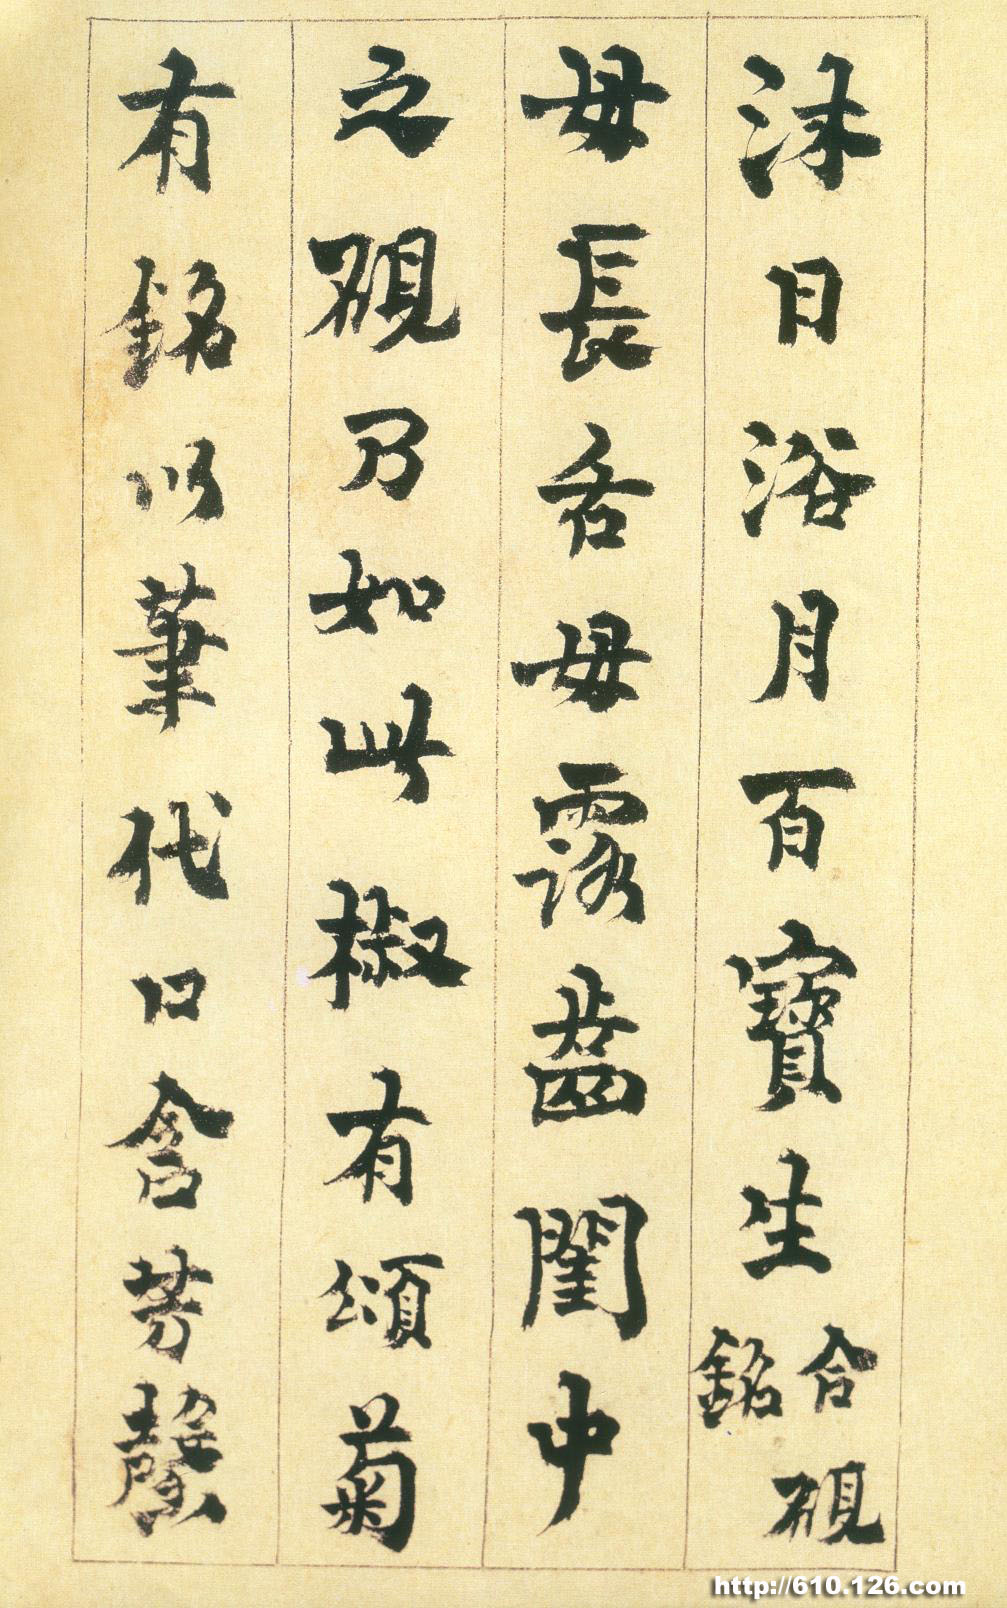 沐日浴月百寶生合硯銘
毋長舌毋露齒閨中
之硯乃如此椒有頌菊
有銘以筆代口含芳馨
http://610.126.com